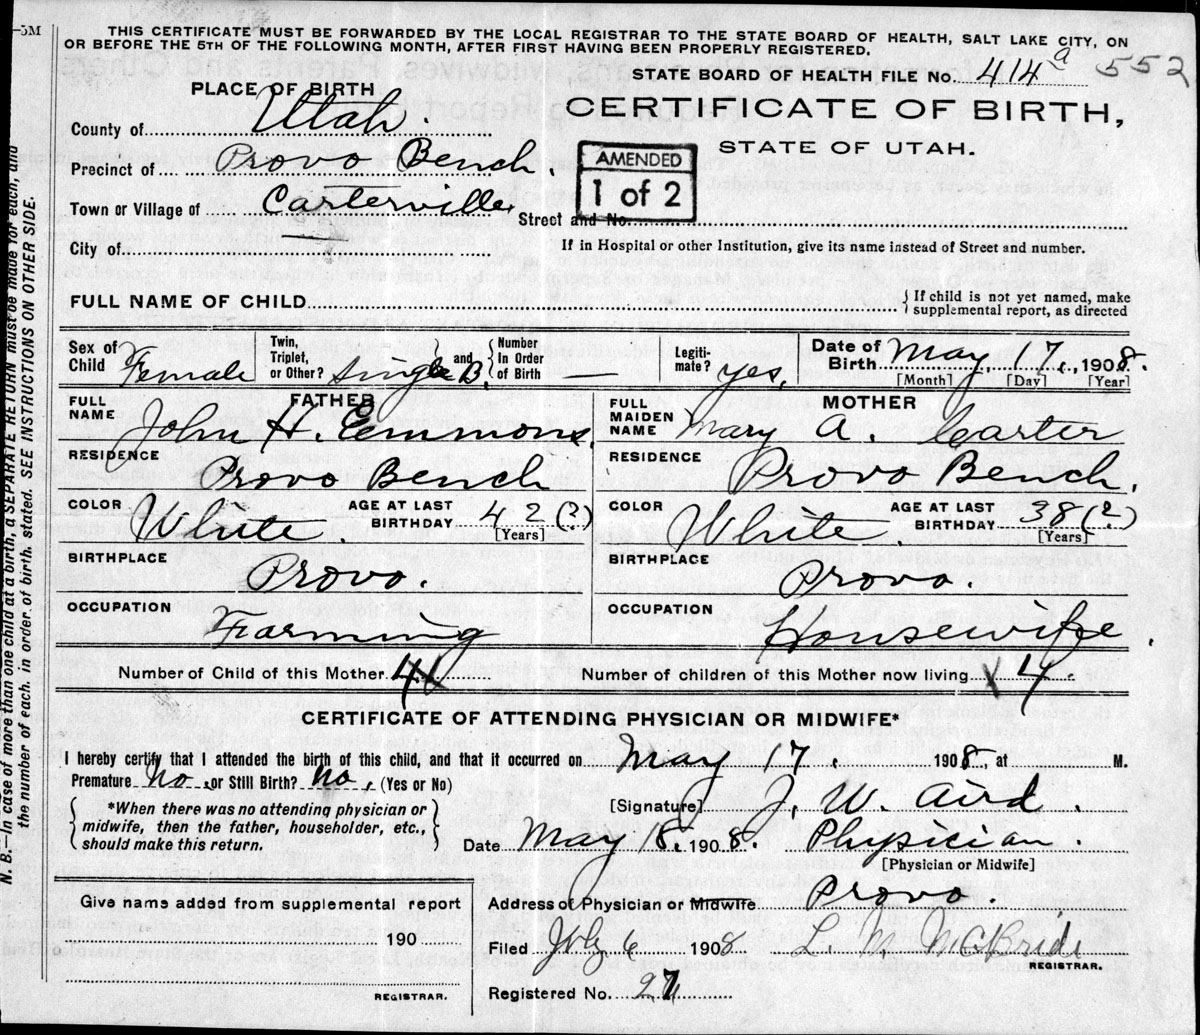 -5M
THIS CERTIFICATE MUST BE FORWARDED BY THE LOCAL REGISTRAR TO THE STATE BOARD OF HEALTH, SALT LAKE CITY, ON
OR BEFORE THE 5TH OF THE FOLLOWING MONTH, AFTER FIRST HAVING BEEN PROPERLY REGISTERED.
STATE BOARD OF HEALTH FILE No. 414 a 552
PLACE OF BIRTH
CERTIFICATE OF BIRTH,
STATE OF UTAH.
County of Utah.
Precinct of Provo Bench.
AMENDED
1 of 2
Town or Village of Carterville,
Street and No.
City of
If in Hospital or other Institution, give its name instead of Street and number.
FULL NAME OF CHILD
{ If child is not yet named, make
supplemental report, as directed
Sex of Child Female
Twin, Triplet, or Other? Single B. } and { Number In Order of Birth —
Legitimate? yes,
Date of Birth May, 17, 1908.
[Month] [Day] [Year]
FATHER
FULL NAME John H. Emmons.
RESIDENCE Provo Bench
COLOR White. AGE AT LAST BIRTHDAY 42 (?)
[Years]
BIRTHPLACE Provo.
OCCUPATION Farming
MOTHER
FULL MAIDEN NAME Mary A. Carter
RESIDENCE Provo Bench.
COLOR White. AGE AT LAST BIRTHDAY 38 (?)
[Years]
BIRTHPLACE Provo.
OCCUPATION Housewife.
Number of Child of this Mother 4
Number of children of this Mother now living 4.
CERTIFICATE OF ATTENDING PHYSICIAN OR MIDWIFE*
I hereby certify that I attended the birth of this child, and that it occurred on May 17. 1908, at M.
Premature No, or Still Birth? No. (Yes or No)
{ *When there was no attending physician or
midwife, then the father, householder, etc.,
should make this return. }
[Signature] J. W. Aird.
Date May 18. 1908. Physician.
[Physician or Midwife]
Address of Physician or Midwife Provo.
Give name added from supplemental report
190
REGISTRAR.
Filed July 6 1908 L. M. McBride
REGISTRAR.
Registered No. 27
N. B.—In case of more than one child at a birth, a SEPARATE RETURN must be made for each, and
the number of each. in order. of birth. stated. SEE INSTRUCTIONS ON OTHER SIDE.